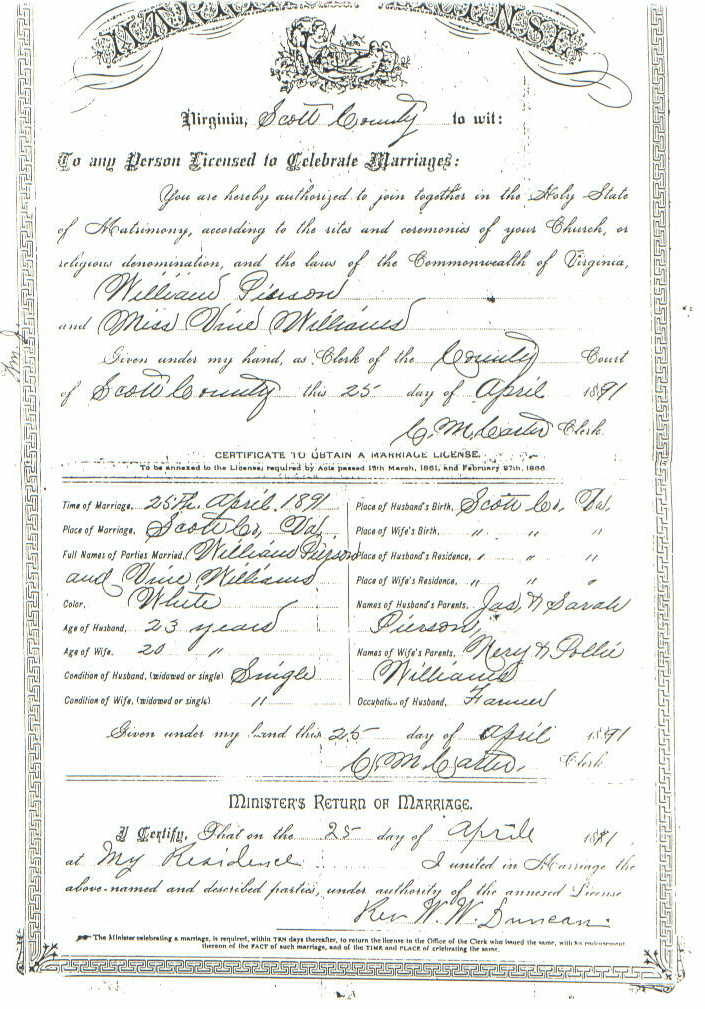 MARRIAGE LICENSE.
Virginia, Scott County to wit:
To any Person Licensed to Celebrate Marriages:
You are hereby authorized to join together in the Holy State
of Matrimony, according to the rites and ceremonies of your Church, or
religious denomination, and the laws of the Commonwealth of Virginia,
William Pierson
and Miss Vine Williams
Given under my hand, as Clerk of the County Court
of Scott County this 25 day of April 1891
C. M. Carter Clerk.
CERTIFICATE TO OBTAIN A MARRIAGE LICENSE.
To be annexed to the License, required by Acts passed 15th March, 1861, and February 27th, 1866
Time of Marriage, 25th April 1891
Place of Marriage, Scott Co, Va,
Full Names of Parties Married, William Pierson
and Vine Williams
Color, White
Age of Husband, 23 years
Age of Wife, 20 "
Condition of Husband, (widowed or single) Single
Condition of Wife, (widowed or single) "
Place of Husband's Birth, Scott Co, Va,
Place of Wife's Birth, " " "
Place of Husband's Residence, " " "
Place of Wife's Residence, " " "
Names of Husband's Parents, Jas, & Sarah
Pierson,
Names of Wife's Parents, Nery & Pollie
Williams
Occupation of Husband, Farmer
Given under my hand this 25 day of April 1891
C. M. Carter, Clerk
MINISTER'S RETURN OF MARRIAGE.
I Certify, That on the 25 day of Aprile 1891,
at My Residence I united in Marriage the
above-named and described parties, under authority of the annexed License
Rev. W. W. Duncan.
The Minister celebrating a marriage, is required, within TEN days thereafter, to return the license to the Office of the Clerk who issued the same, with an endorsement
thereon of the FACT of such marriage, and of the TIME and PLACE of celebrating the same.